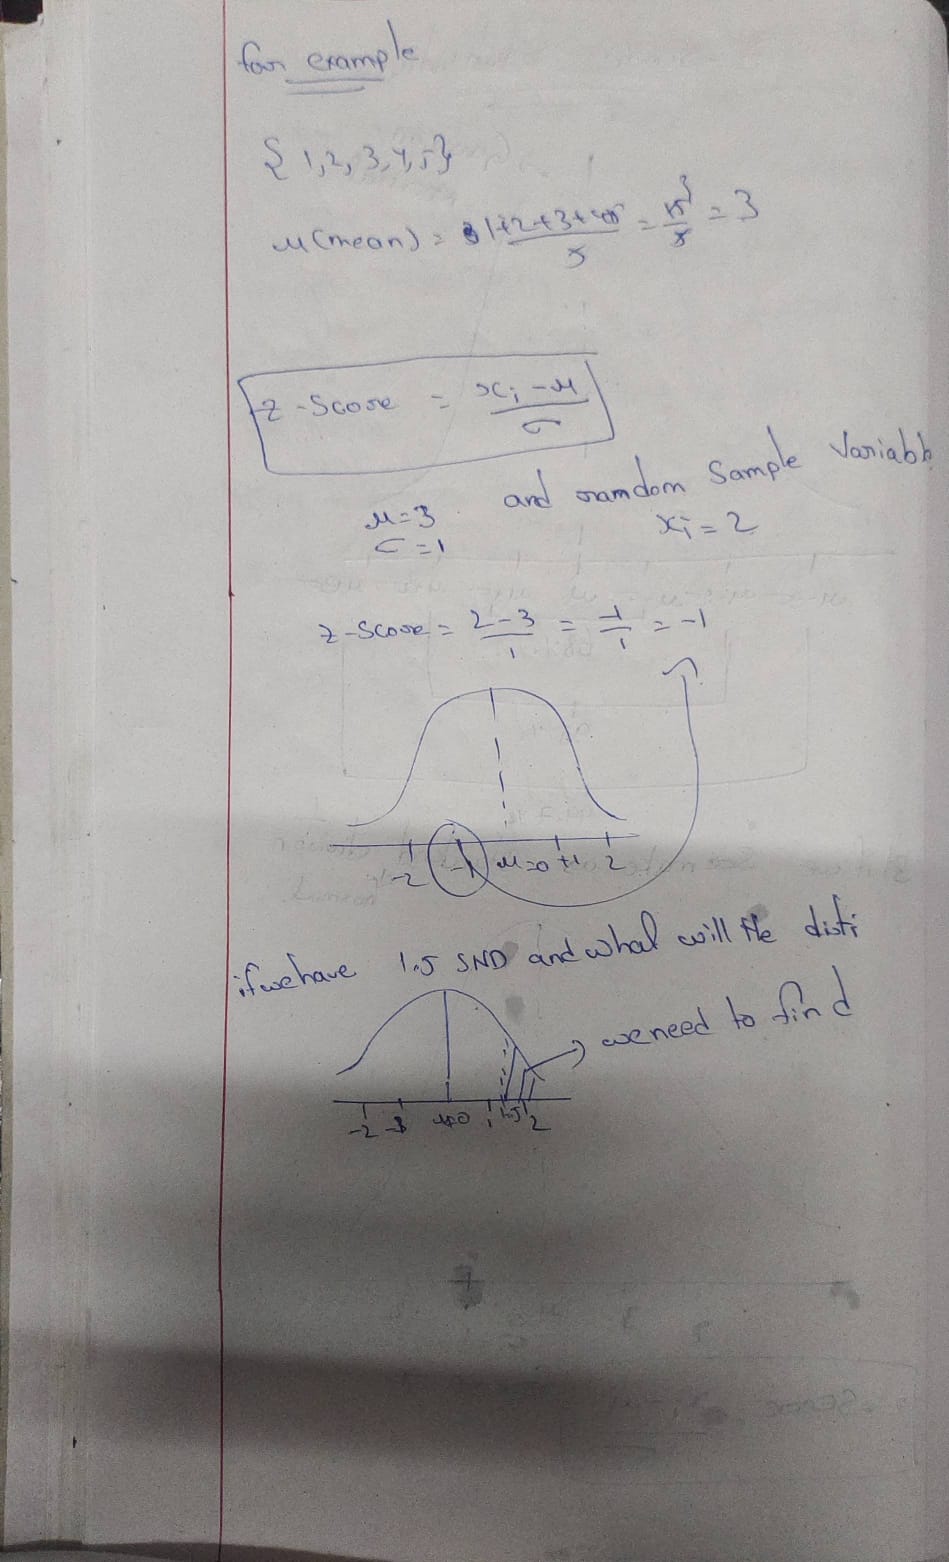 for example
{1,2,3,4,5}
μ(mean) = 1+2+3+4+5/5 = 15/5 3 = 3
z-Score = xi-μ/σ
μ=3 and random Sample Variabl
σ=1 xi=2
z-Score = 2-3/1 = -1/1 = -1
-2 -1 μ=0 +1 2
if we have 1.5 SND and what will the disti
we need to find
-2 -1 μ=0 1 1.5 2